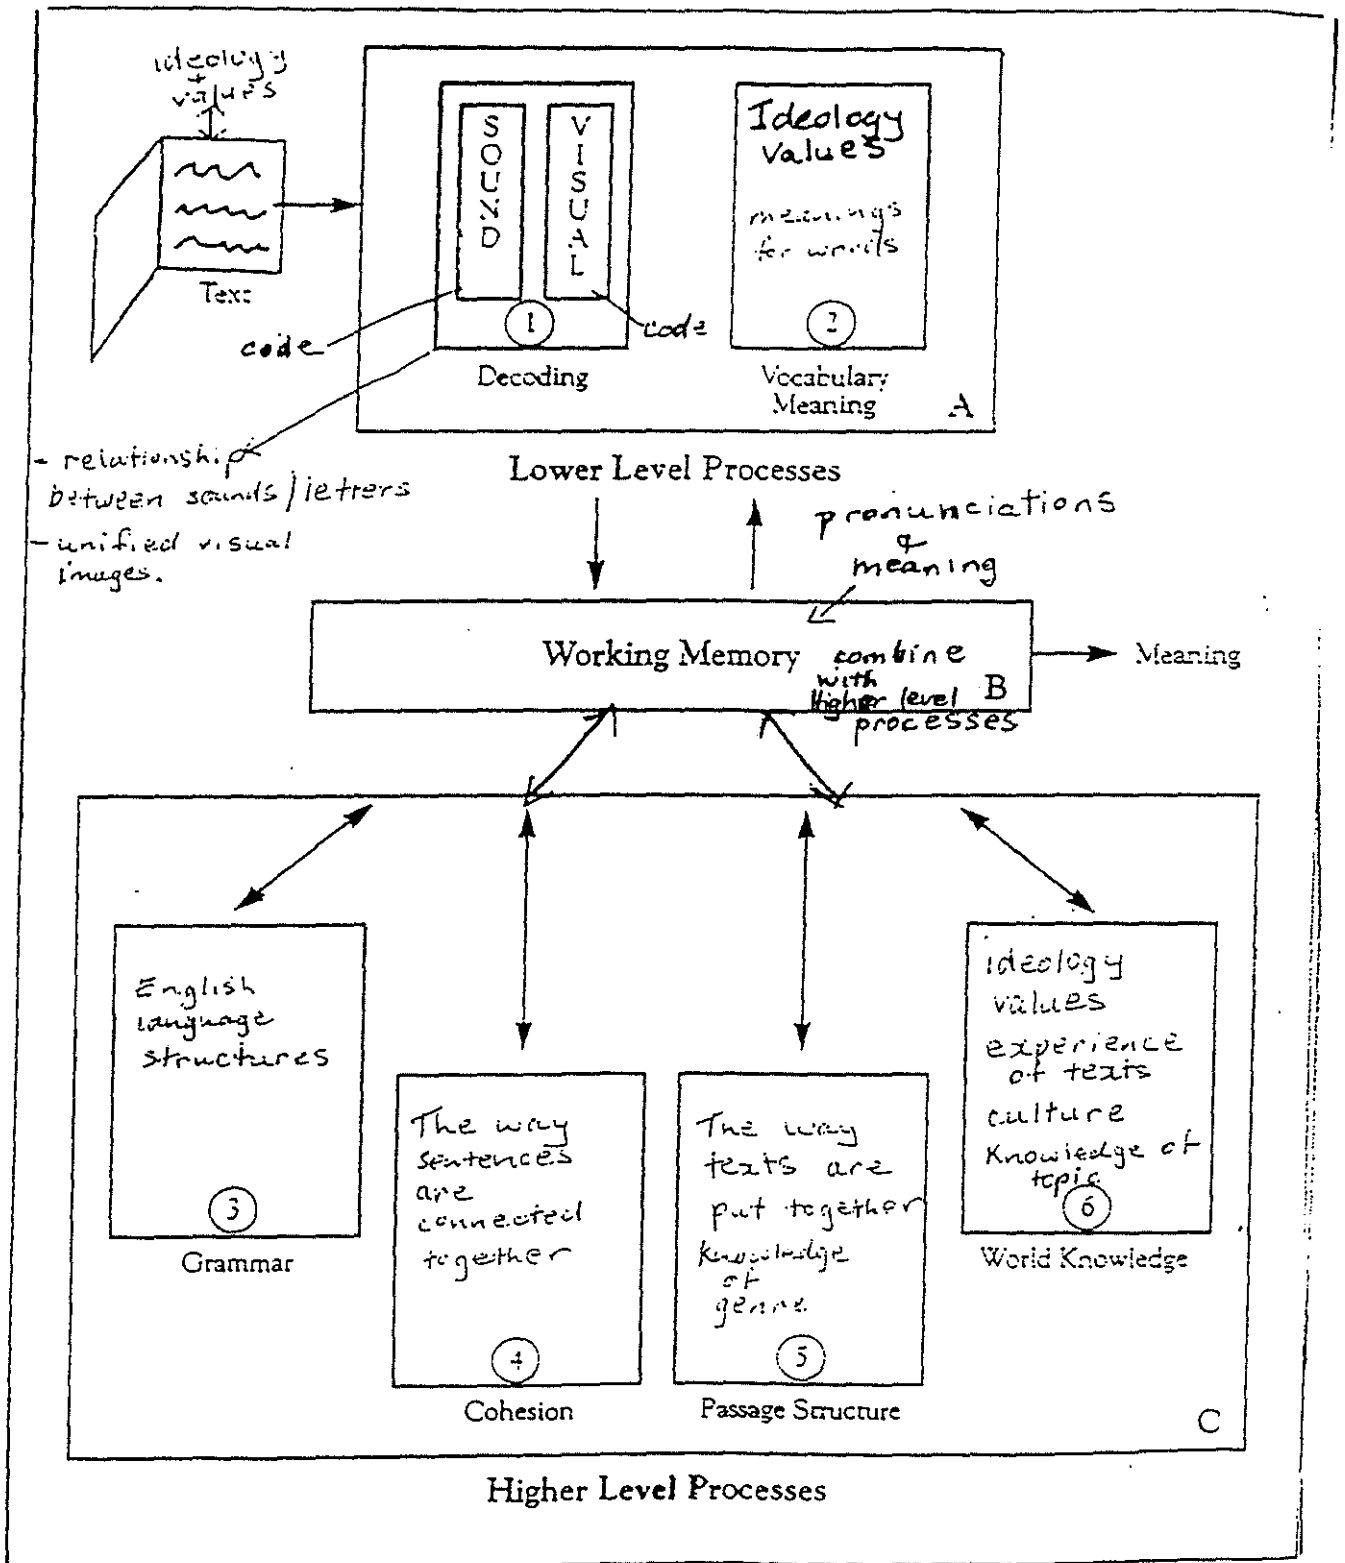 ideology
+
values
Text
SOUND
VISUAL
1
code
code
Decoding
Ideology
values
meanings
for words
2
Vocabulary
Meaning
A
- relationship
between sounds/letters
- unified visual
images.
Lower Level Processes
pronunciations
&
meaning
Working Memory
combine
with
Higher level
processes
B
Meaning
English
language
structures
3
Grammar
The way
sentences
are
connected
together
4
Cohesion
The way
texts are
put together
Knowledge
of
genre
5
Passage Structure
ideology
values
experience
of texts
culture
Knowledge of
topic
6
World Knowledge
C
Higher Level Processes